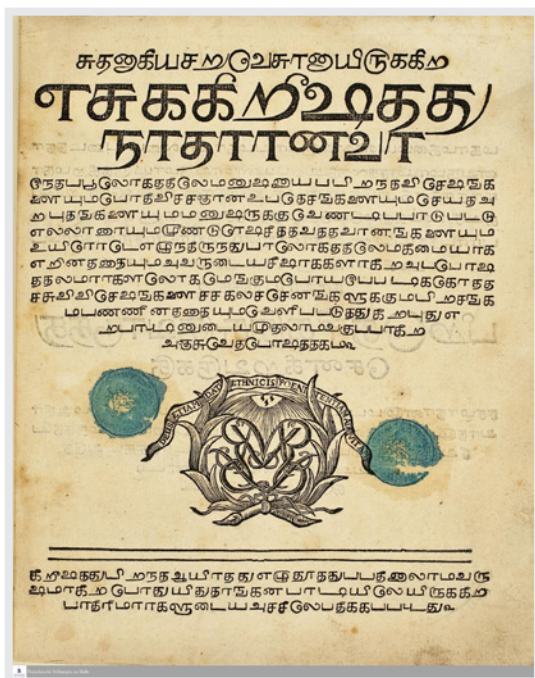 சுதனாகியசறுவேசுரனாயிருககிற
எசுககிறீஷதது
நாதரானவர
இநதபபூலோகததிலேமனுஷனாயபபிறநதவிசேஷஙக
ளையுமபோதிவிசசஞானஉபதேசஙகளையுமசெயதஅ
றபுதஙகளையுமமனுஷருககுவேணடிபபாடுபடடு
எலலாரையுமமீணடுரடசிததவததவானஙகளையும
உயிரோடேஎழுநதிருநதுபரலோகததிலேமதிமையாக
எறினததையுமஅவருடையசீஷரகளாகிறஅபபோஷ
தலமாரகளலோகமெஙகுமபோயபபேபபடிககொதத
சுவிசேஷஙகளைசசகலசெனஙகளுககுமபிறசஙக
மபணணினததையுமவெளிபபடுததுகிறபுதுஎ
றபாடடினுடையமுதலாமவகுபபாகிற
அஞசுவேதபொஷததகம
DEUS ETIAM DAT ETHNICIS POENITENTIAM AD VITA
கிறிஷததுபிறநதஆயிரததுஎழுநூததுபபதினாலாமவரு
ஷமாகிறபோதுயிதுதரஙகனபாடியிலேயிருககிற
பாதிரிமாரகளுடையஅசசிலேபதிககபபடடது